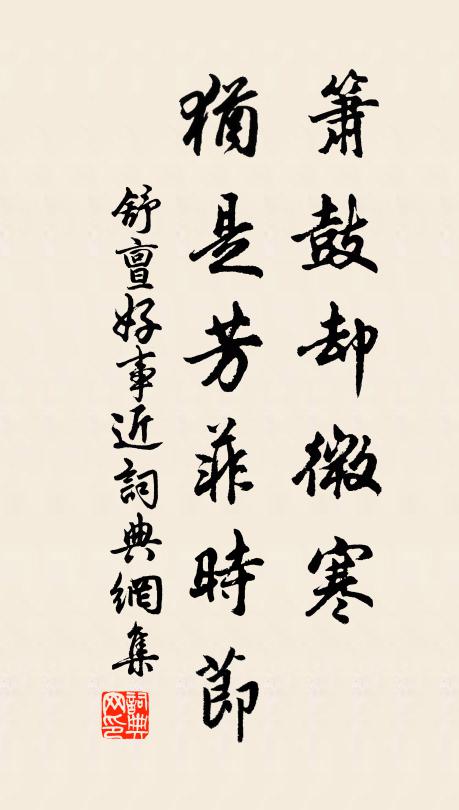 簫鼓却微寒
猶是芳菲時節
舒亶好事近詞典網集
詞典
网印